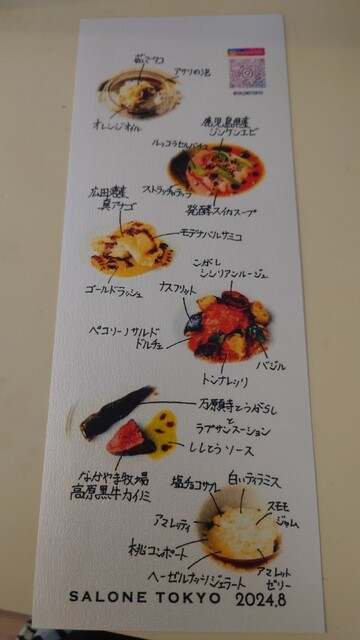 茹でタコ
アサリの泡
オレンジオイル
鹿児島県産
ジンケンエビ
ルッコラセルバチコ
ストラッチャテッラ
発酵スイカスープ
広田湾産
真アナゴ
モデナバルサミコ
ゴールドラッシュ
こがし
シシリアンルージュ
ナスフリット
ペコリーノサルド
ドルチェ
バジル
トンナレッリ
万願寺とうがらし
と
ラプサンスーション
ししとうソース
なかやま牧場
高原黒牛カイノミ
塩チョコサブレ
白いティラミス
スモモ
ジャム
アマレッティ
桃コンポート
ヘーゼルナッツジェラート
アマレット
ゼリー
SALONE TOKYO 2024.8